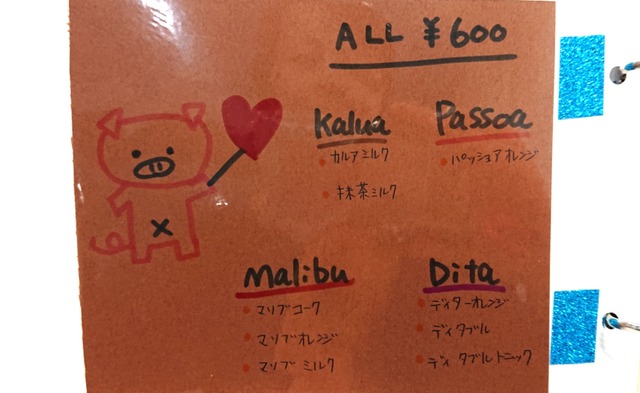 ALL ¥600
Kalua
カルアミルク
抹茶ミルク
Passoa
パッショアオレンジ
Malibu
マリブコーク
マリブオレンジ
マリブミルク
Dita
ディターオレンジ
ディタブル
ディタブルトニック